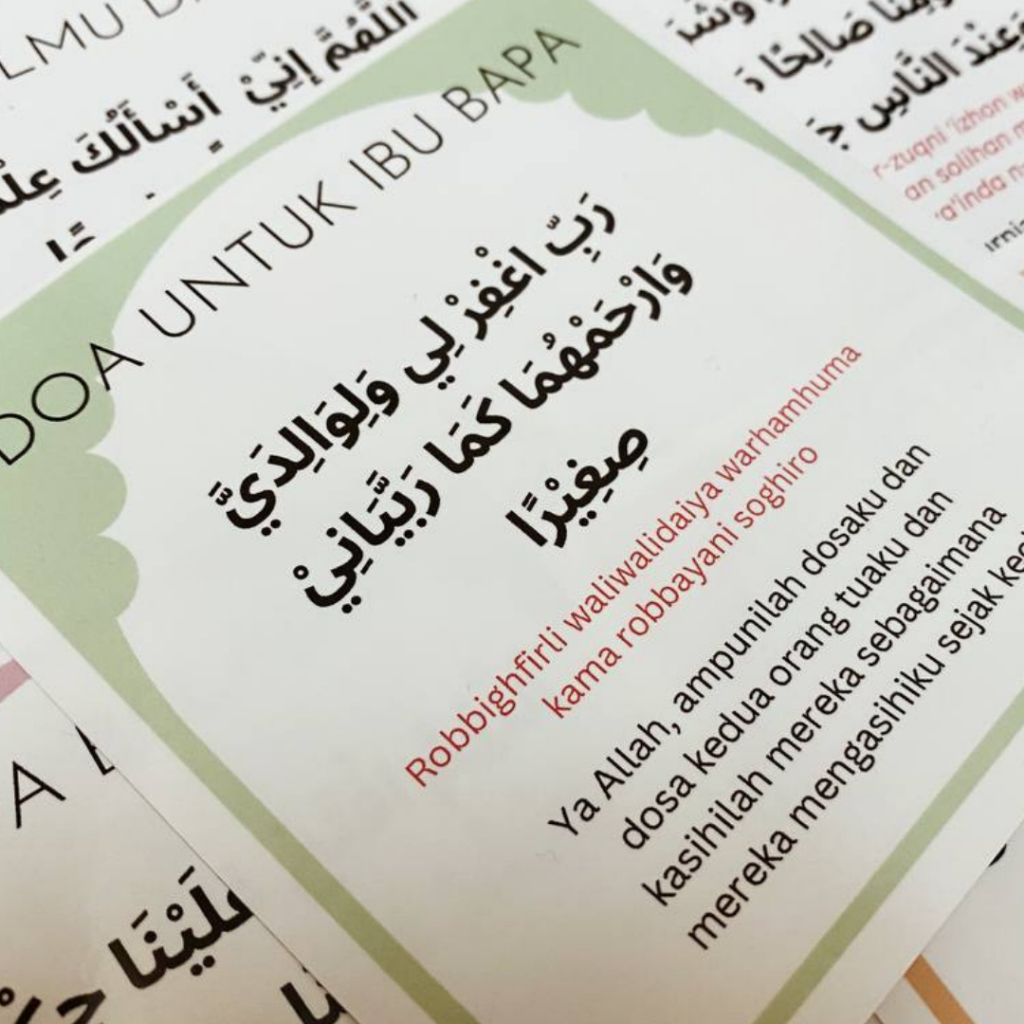 DOA UNTUK IBU BAPA
رَبِّ اغْفِرْ لِي وَلِوَالِدَيَّ
وَارْحَمْهُمَا كَمَا رَبَّيَانِيْ
صِغِيْرًا
Robbighfirli waliwalidaiya warhamhuma
kama robbayani soghiro
Ya Allah, ampunilah dosaku dan
dosa kedua orang tuaku dan
kasihilah mereka sebagaimana
mereka mengasihiku sejak
LMU
اللَّهُمَّ إِنِّيْ أَسْأَلُكَ
صَالِحًا
وَعِنْدَ النَّاسِ
r-zuqni 'izhan
an solihan
'a'inda
A